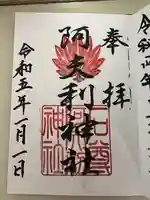 奉拝
阿夫利神社
令和五年一月一日